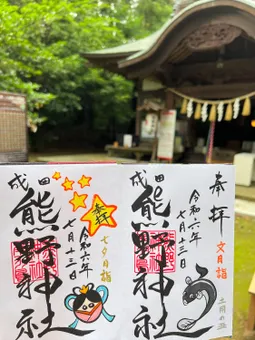 成田
熊野神社
奉拝
七夕月詣
令和六年
七月十三日
成田
熊野神社
奉拝
文月詣
令和六年
七月十三日
土用の丑